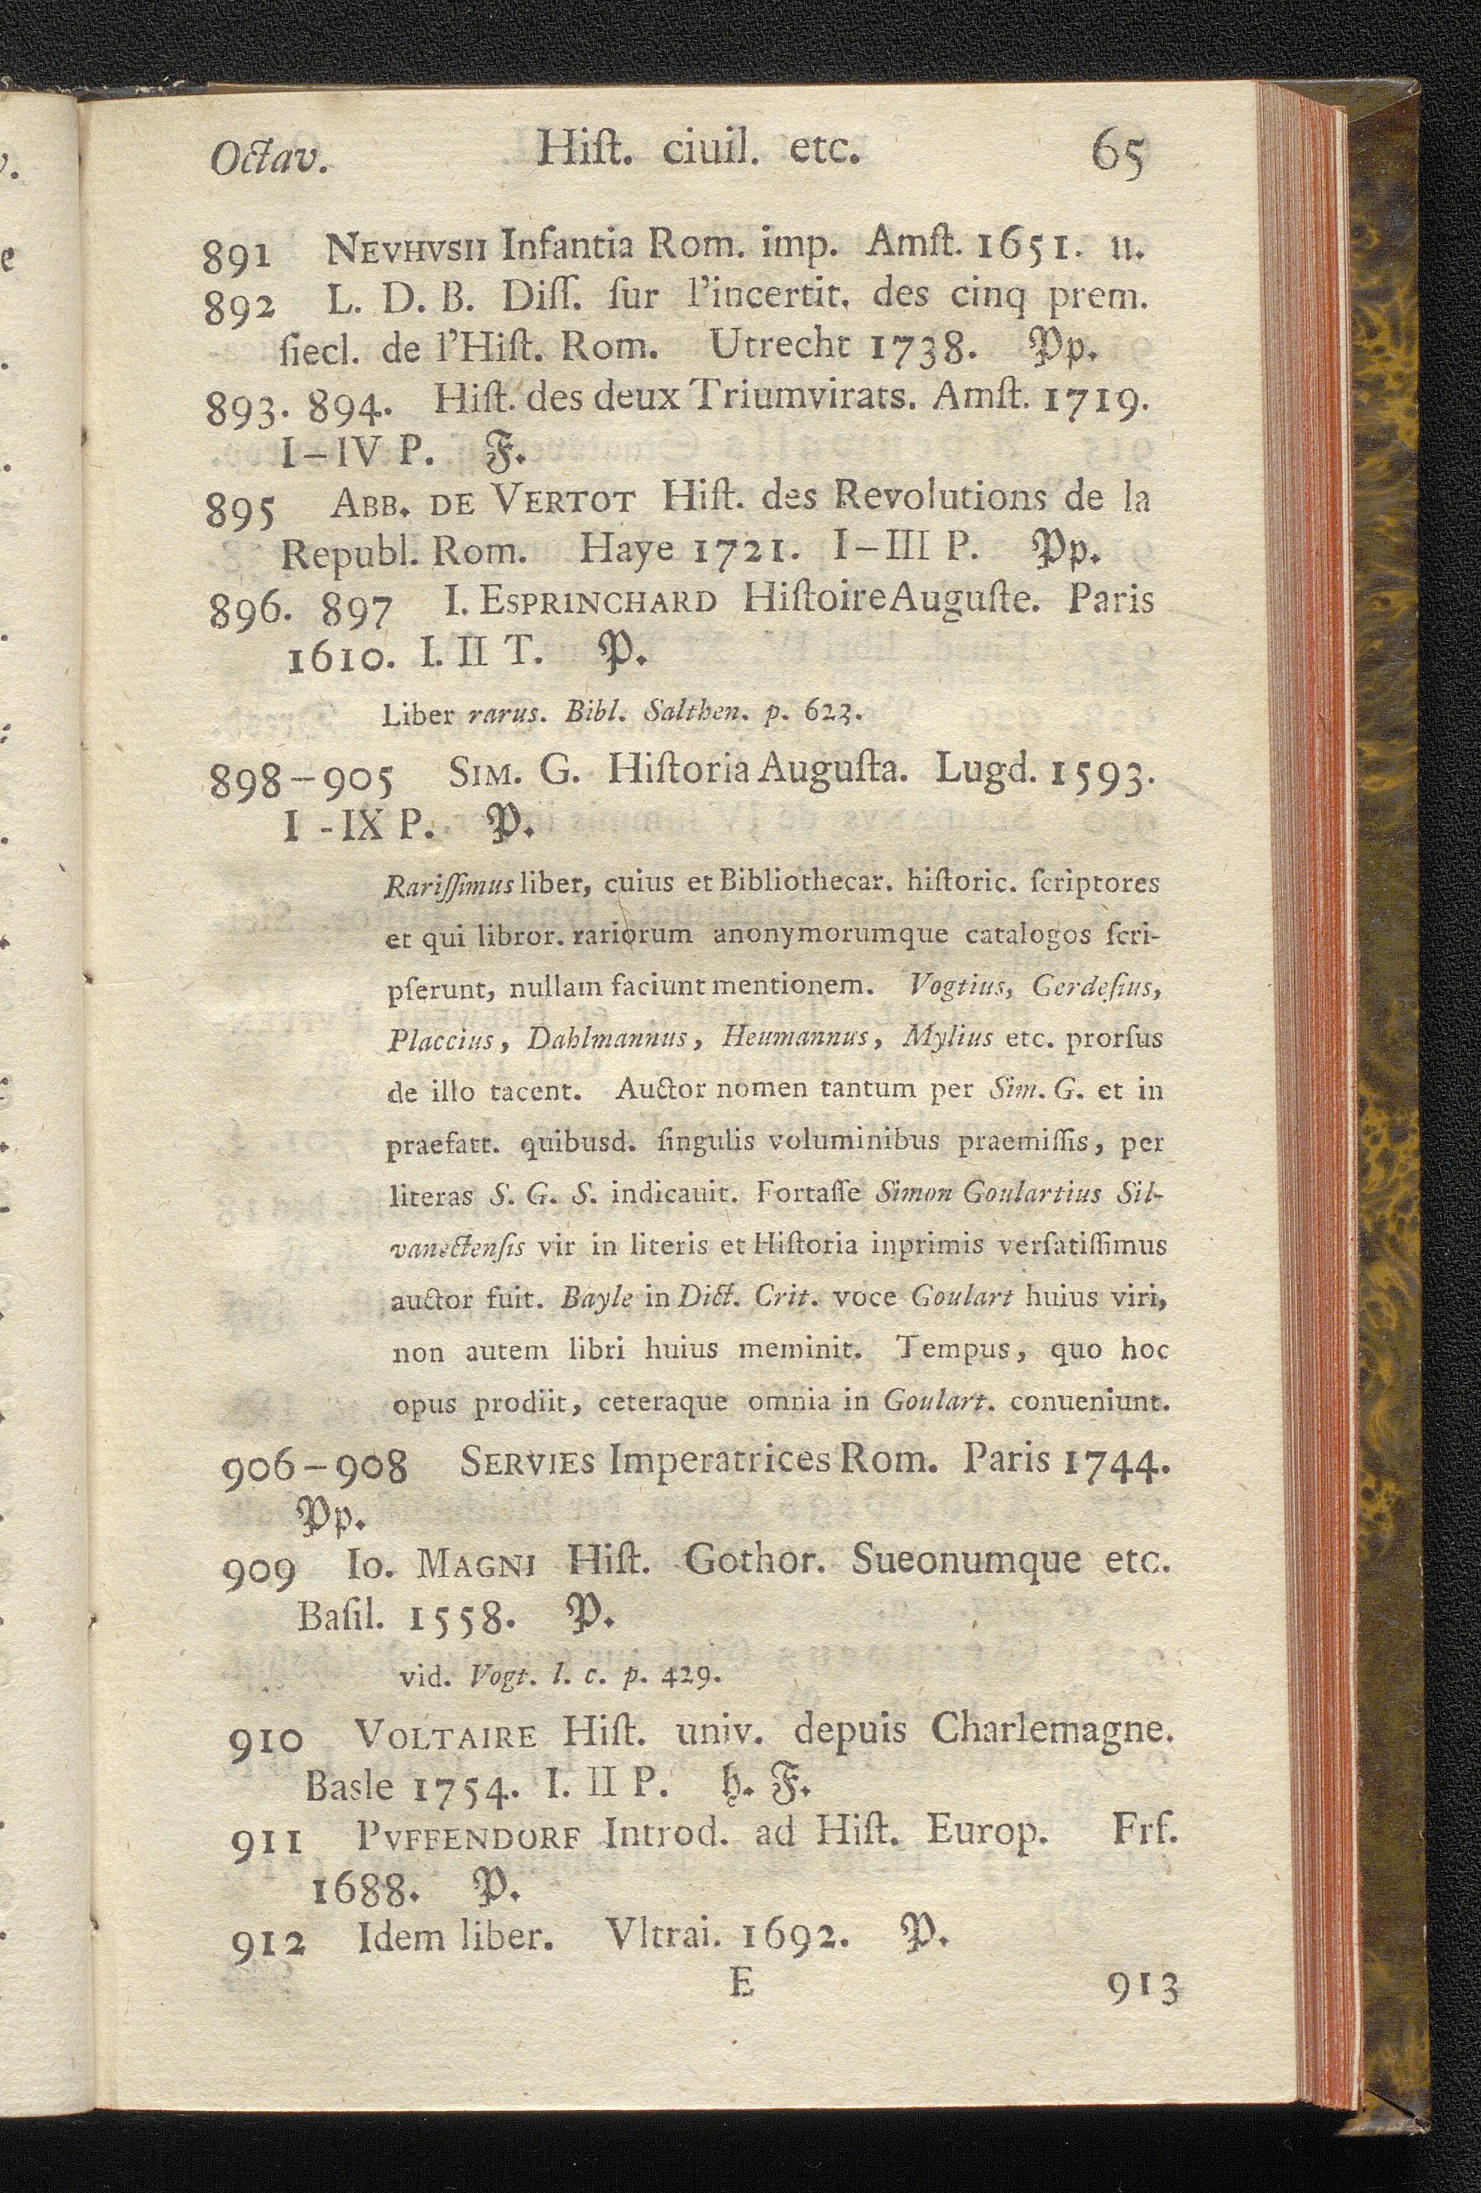 Octav. Hiſt. ciuil. etc. 65
891 NEVHVSII Infantia Rom. imp. Amſt. 1651. u.
892 L. D. B. Diſſ. ſur l'incertit. des cinq prem.
ſiecl. de l'Hiſt. Rom. Utrecht 1738. Pp.
893. 894. Hiſt. des deux Triumvirats. Amſt. 1719.
I–IV P. F.
895 ABB. DE VERTOT Hiſt. des Revolutions de la
Republ. Rom. Haye 1721. I–III P. Pp.
896. 897 I. ESPRINCHARD Hiſtoire Auguſte. Paris
1610. I. II T. P.
Liber rarus. Bibl. Salthen. p. 623.
898–905 SIM. G. Hiſtoria Auguſta. Lugd. 1593.
I-IX P. P.
Rariſſimus liber, cuius et Bibliothecar. hiſtoric. ſcriptores
et qui libror. rariorum anonymorumque catalogos ſcri-
pſerunt, nullam faciunt mentionem. Vogtius, Gerdeſius,
Placcius, Dahlmannus, Heumannus, Mylius etc. prorſus
de illo tacent. Auctor nomen tantum per Sim. G. et in
praefatt. quibusd. ſingulis voluminibus praemiſſis, per
literas S. G. S. indicauit. Fortaſſe Simon Goulartius Sil-
vanectenſis vir in literis et Hiſtoria inprimis verſatiſſimus
auctor fuit. Bayle in Dict. Crit. voce Goulart huius viri,
non autem libri huius meminit. Tempus, quo hoc
opus prodiit, ceteraque omnia in Goulart. conueniunt.
906–908 SERVIES Imperatrices Rom. Paris 1744.
Pp.
909 Io. MAGNI Hiſt. Gothor. Sueonumque etc.
Baſil. 1558. P.
vid. Vogt. l. c. p. 429.
910 VOLTAIRE Hiſt. univ. depuis Charlemagne.
Basle 1754. I. II P. h. F.
911 PVFFENDORF Introd. ad Hiſt. Europ. Frf.
1688. P.
912 Idem liber. Vltrai. 1692. P.
E 913